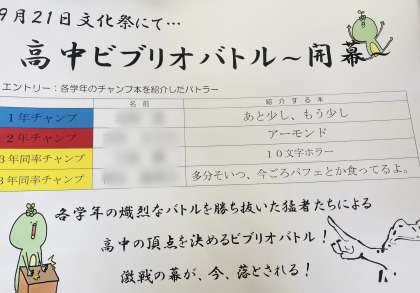 9月21日文化祭にて…
高中ビブリオバトル～開幕～
エントリー：各学年のチャンプ本を紹介したバトラー
名前 紹介する本
1年チャンプ あと少し、もう少し
2年チャンプ アーモンド
3年同率チャンプ 10文字ホラー
3年同率チャンプ 多分そいつ、今ごろパフェとか食ってるよ。
各学年の熾烈なバトルを勝ち抜いた猛者たちによる
高中の頂点を決めるビブリオバトル！
激戦の幕が、今、落とされる！